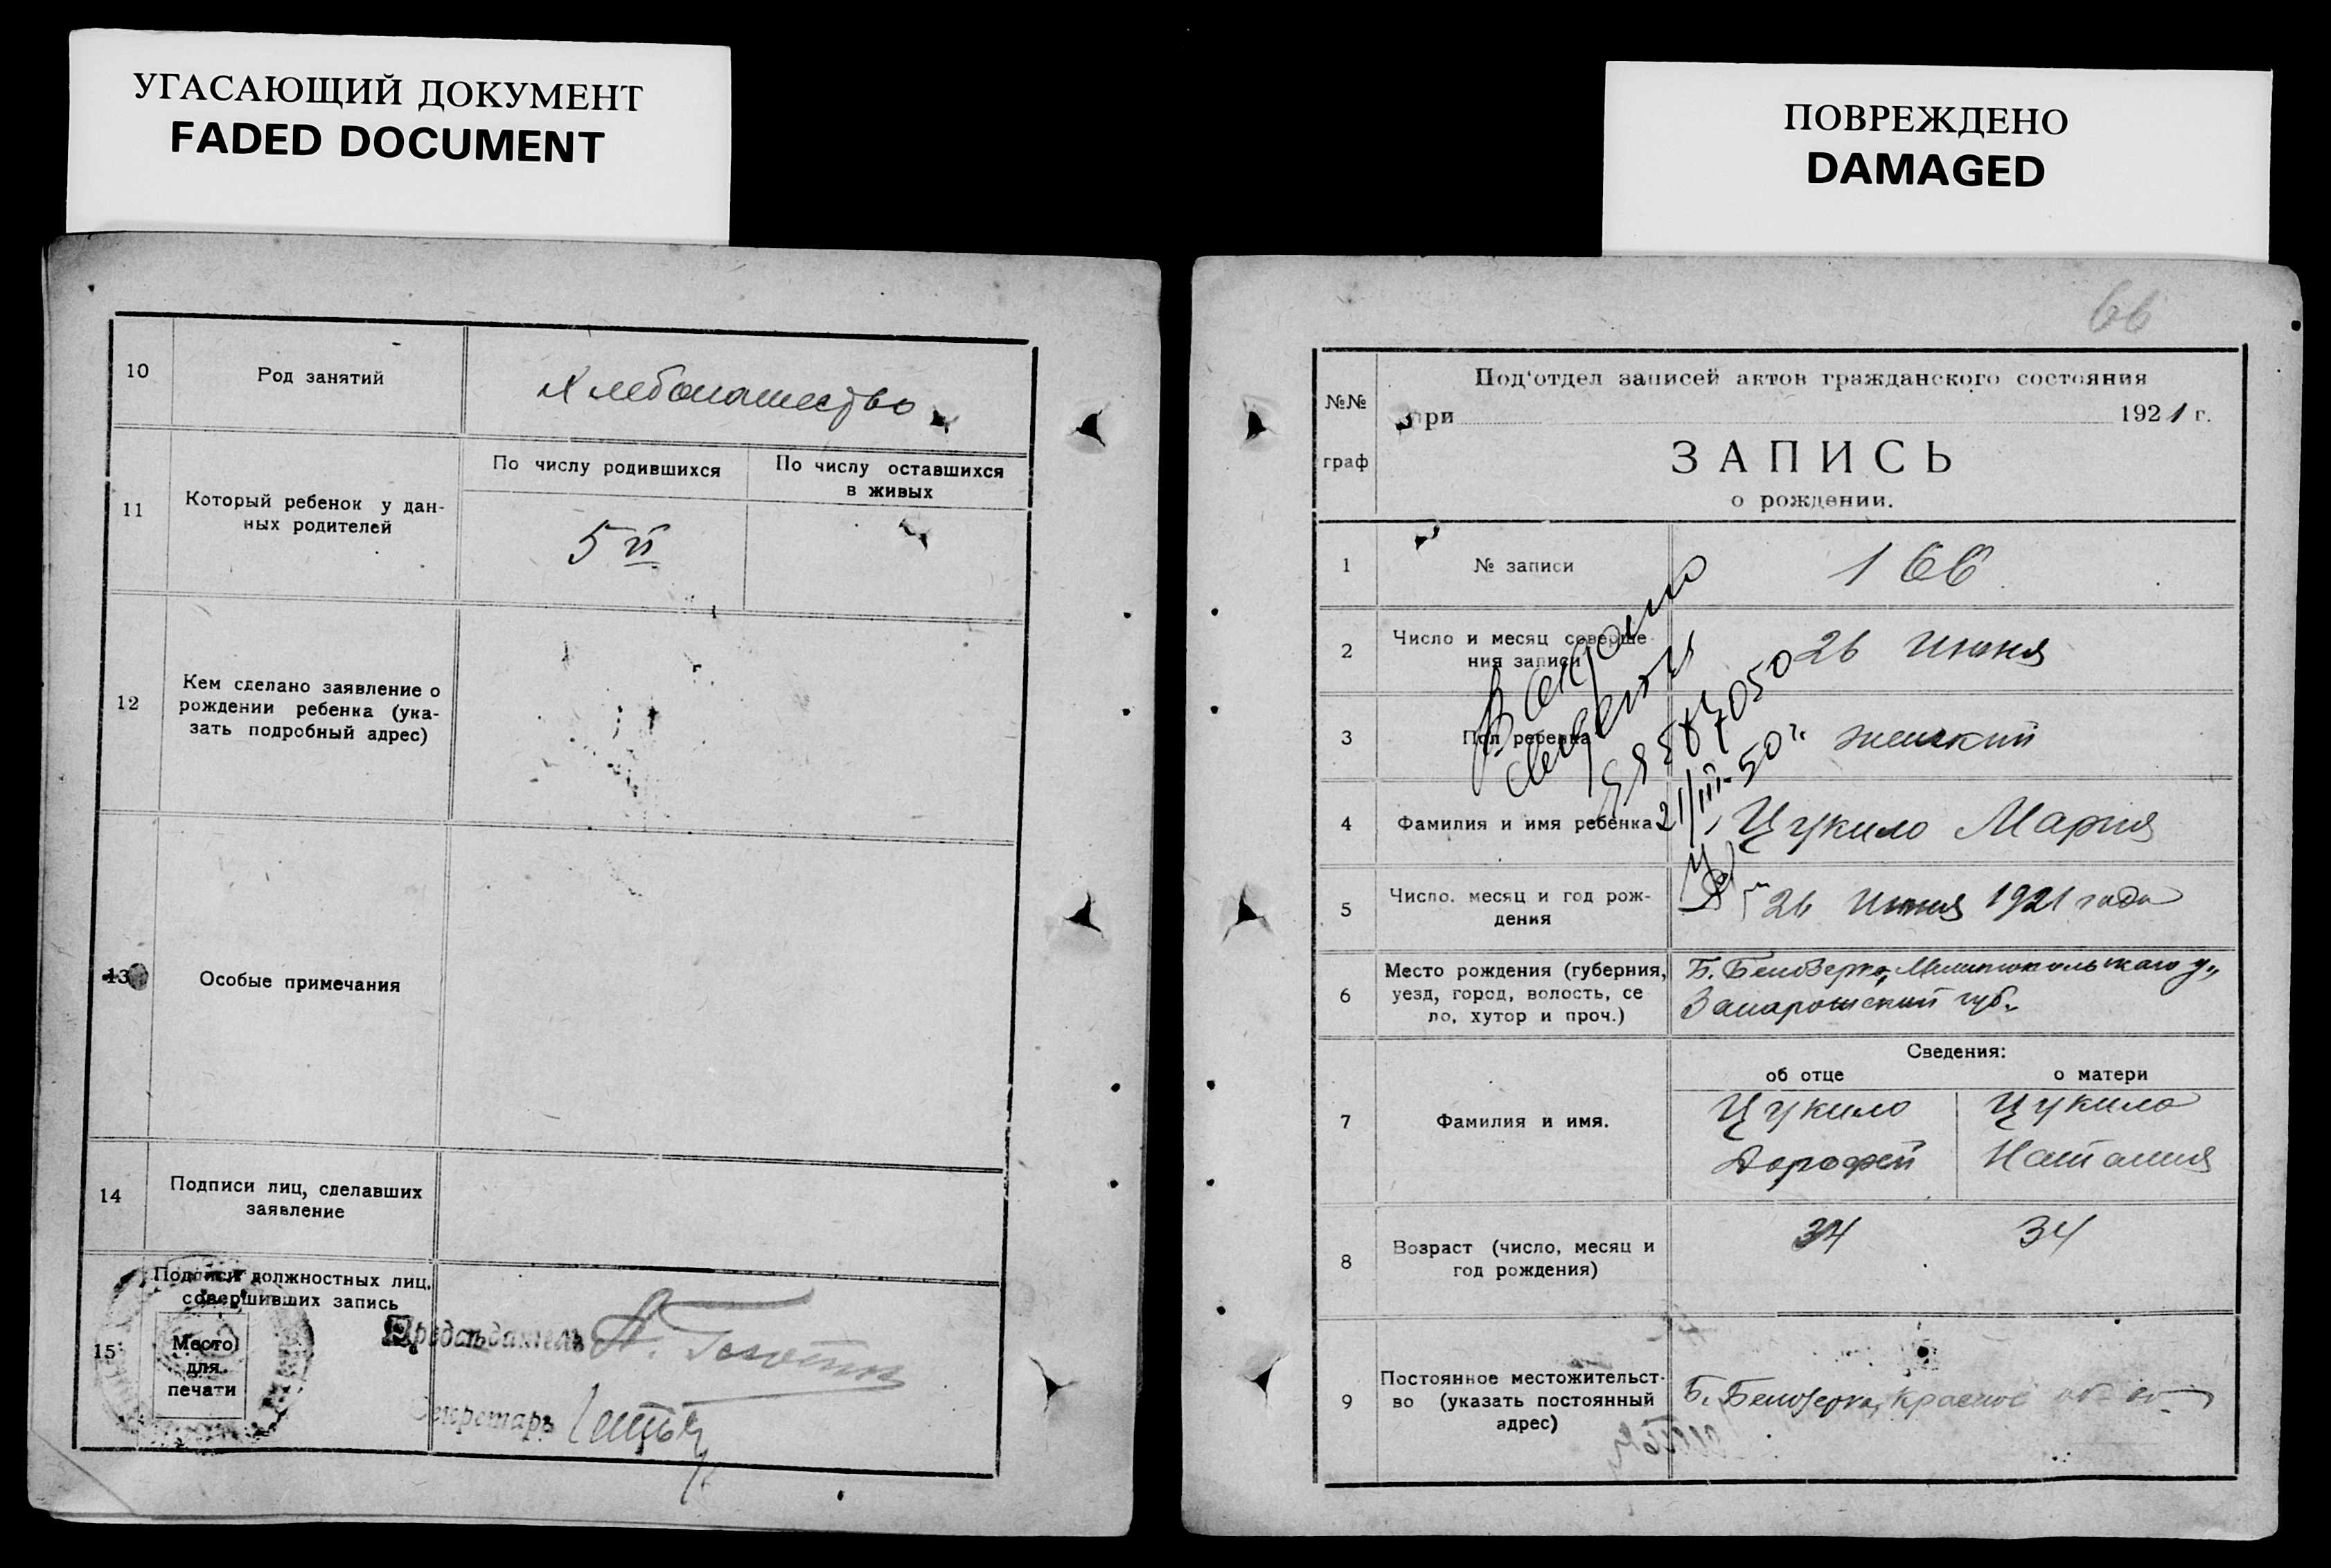 УГАСАЮЩИЙ ДОКУМЕНТ
FADED DOCUMENT
10
Род занятий
Хлебопашество
11
Который ребенок у дан-
ных родителей
По числу родившихся
5й
По числу оставшихся
в живых
12
Кем сделано заявление о
рождении ребенка (ука-
зать подробный адрес)
13
Особые примечания
14
Подписи лиц, сделавших
заявление
15
Подписи должностных лиц,
совершивших запись
Место
для
печати
Председатель
Секретарь
ПОВРЕЖДЕНО
DAMAGED
66
№№
граф
Под'отдел записей актов гражданского состояния
при 1921 г.
ЗАПИСЬ
о рождении.
1
№ записи
166
2
Число и месяц соверше-
ния записи
26 Июня
3
Пол ребенка
женский
4
Фамилия и имя ребенка
Цукило Мария
21/III-50 г.
5
Число, месяц и год рож-
дения
26 Июня 1921 года
6
Место рождения (губерния,
уезд, город, волость, се
ло, хутор и проч.)
Б. Белозерка, Мелитопольскаго у.,
Запарожской губ.
Сведения:
об отце
о матери
7
Фамилия и имя.
Цукило
Дорофей
Цукило
Наталия
8
Возраст (число, месяц и
год рождения)
34
34
9
Постоянное местожительст-
во (указать постоянный
адрес)
Б. Белозерка, Красное